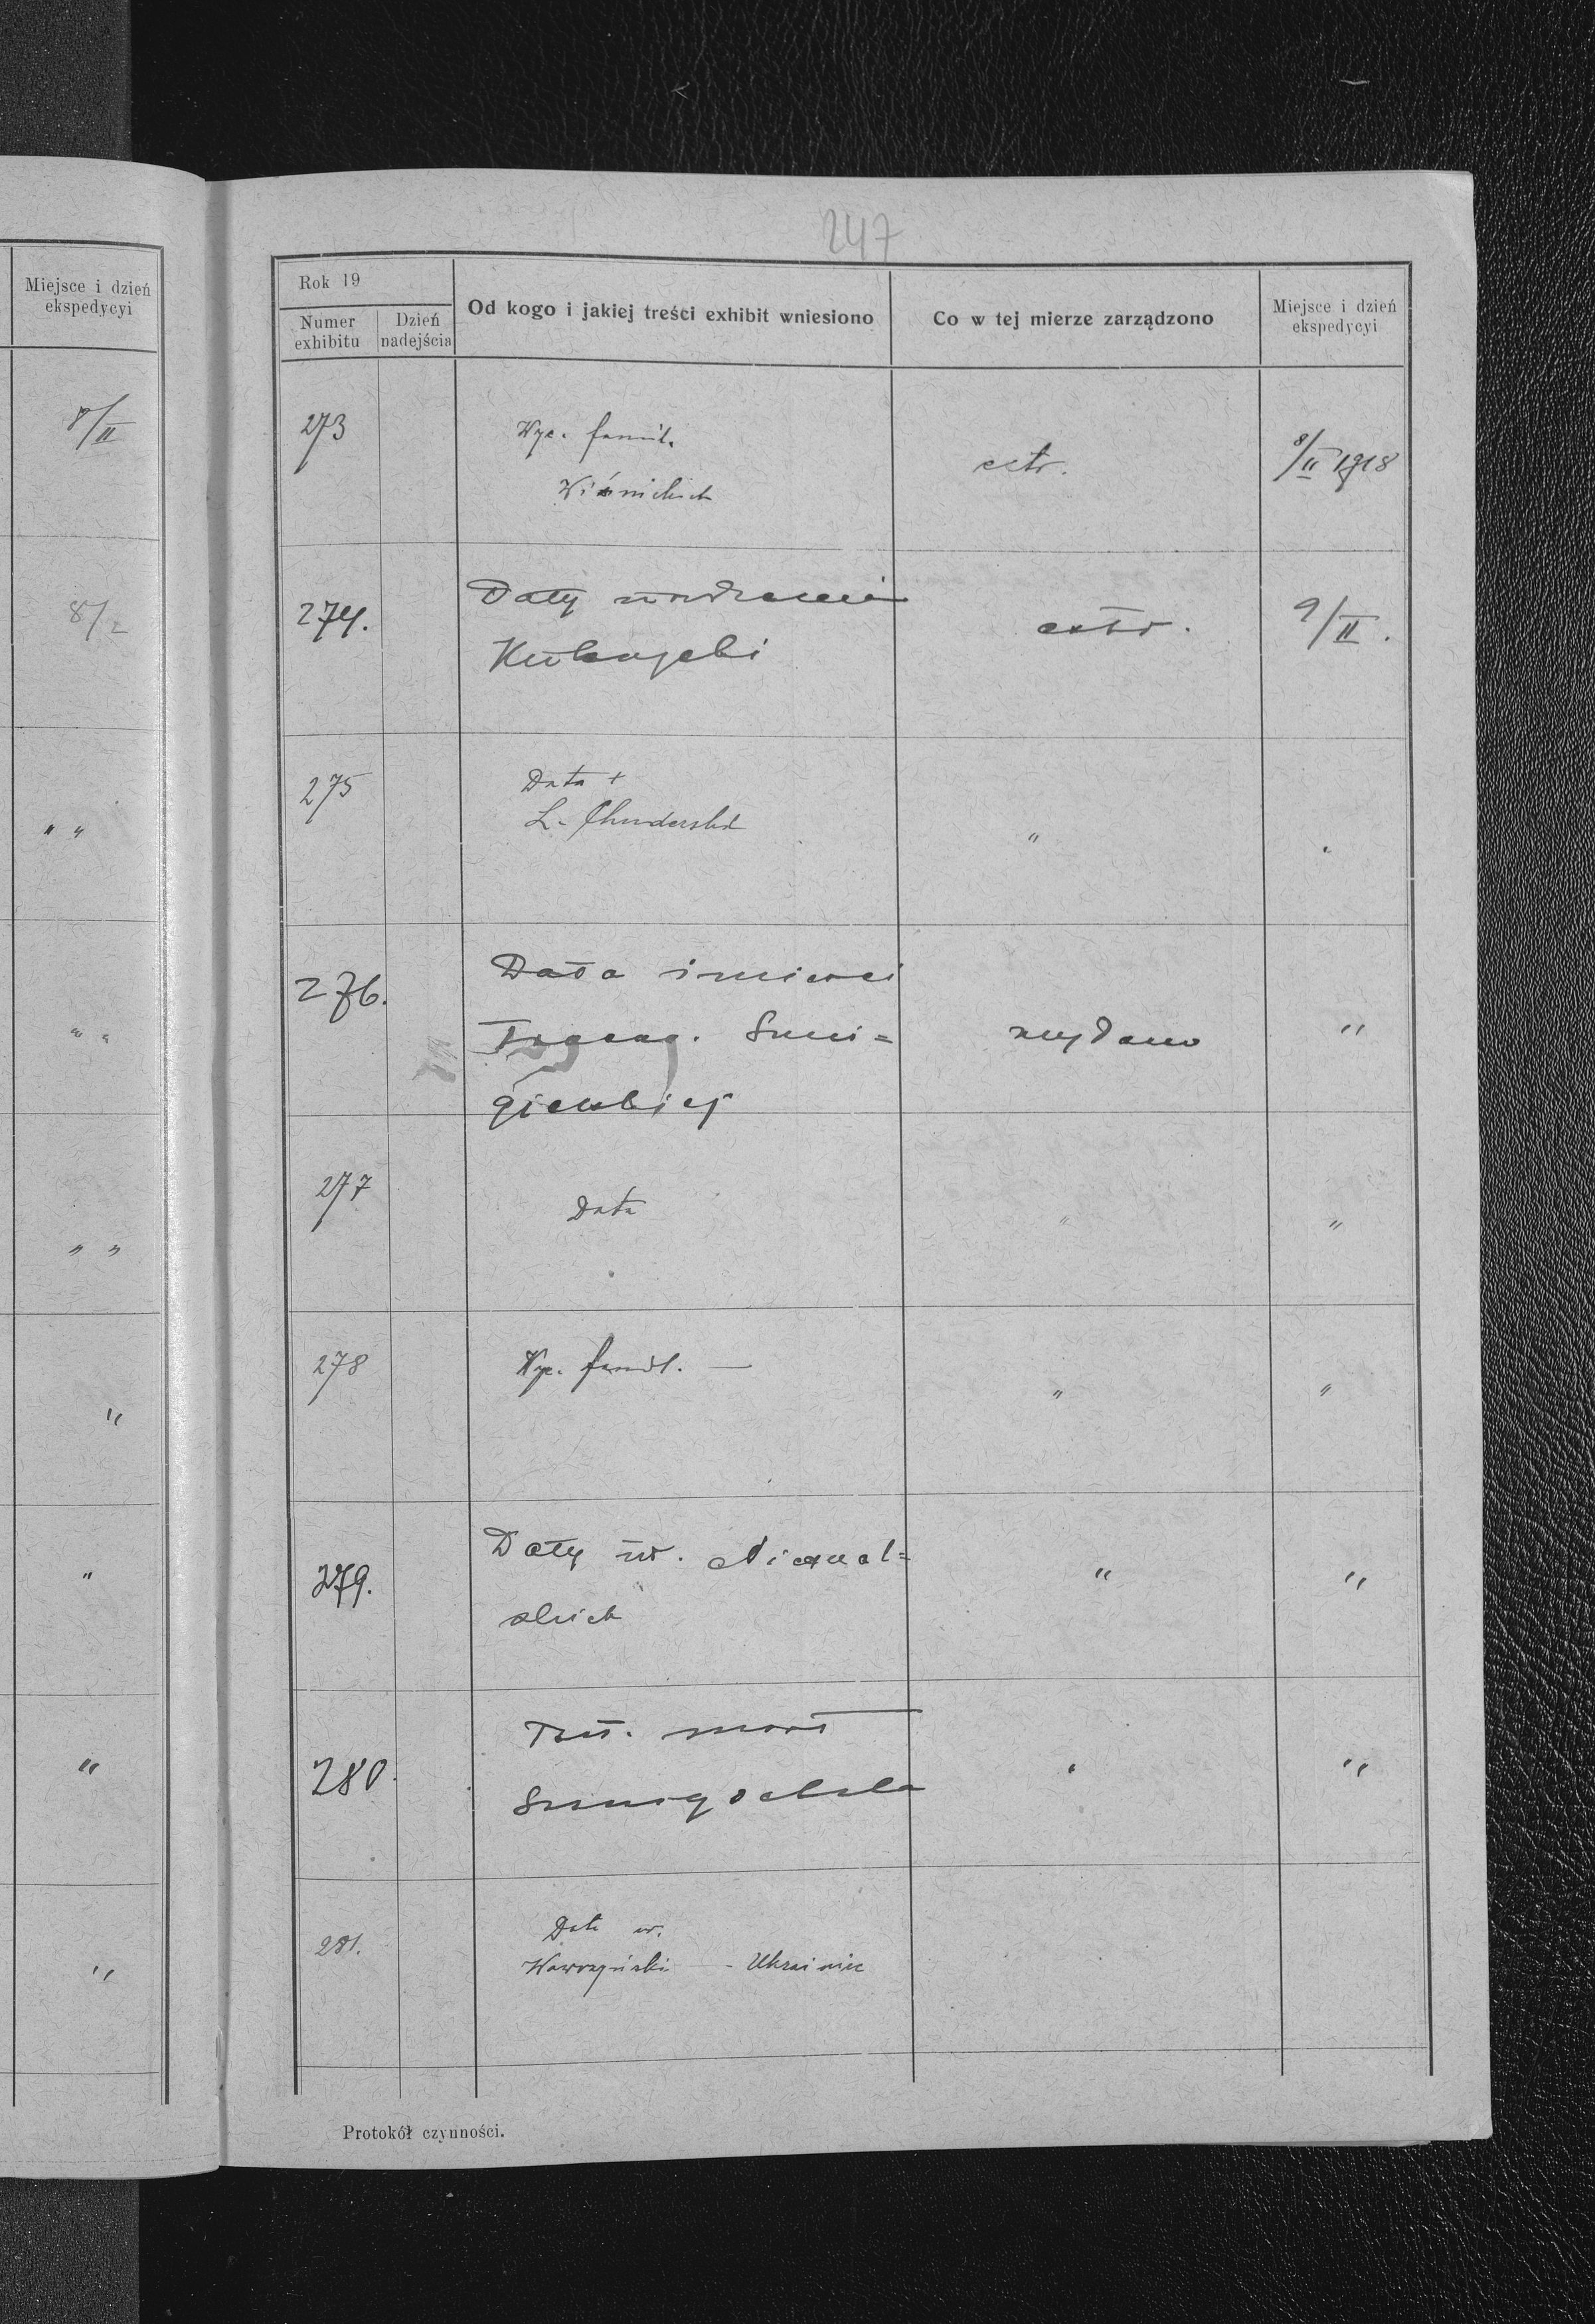 Miejsce i dzień
ekspedycyi
8/II
8/2
" "
" "
" "
"
"
"
"
247
Rok 19
Numer
exhibitu
Dzień
nadejścia
Od kogo i jakiej treści exhibit wniesiono
Co w tej mierze zarządzono
Miejsce i dzień
ekspedycyi
273
Wyc. famil.
Wiśnickich
extr.
8/II 1918
274.
Daty urodzenia
extr.
9/II.
275
Data +
L. Chuderski
"
276.
Data śmierci
wydano
"
277
Data
"
"
278
Wyc. famil. —
"
"
279.
Daty ur.
"
"
280.
Test. mort
"
281.
Data ur.
Wawrzyński - Ukrainiec
Protokół czynności.